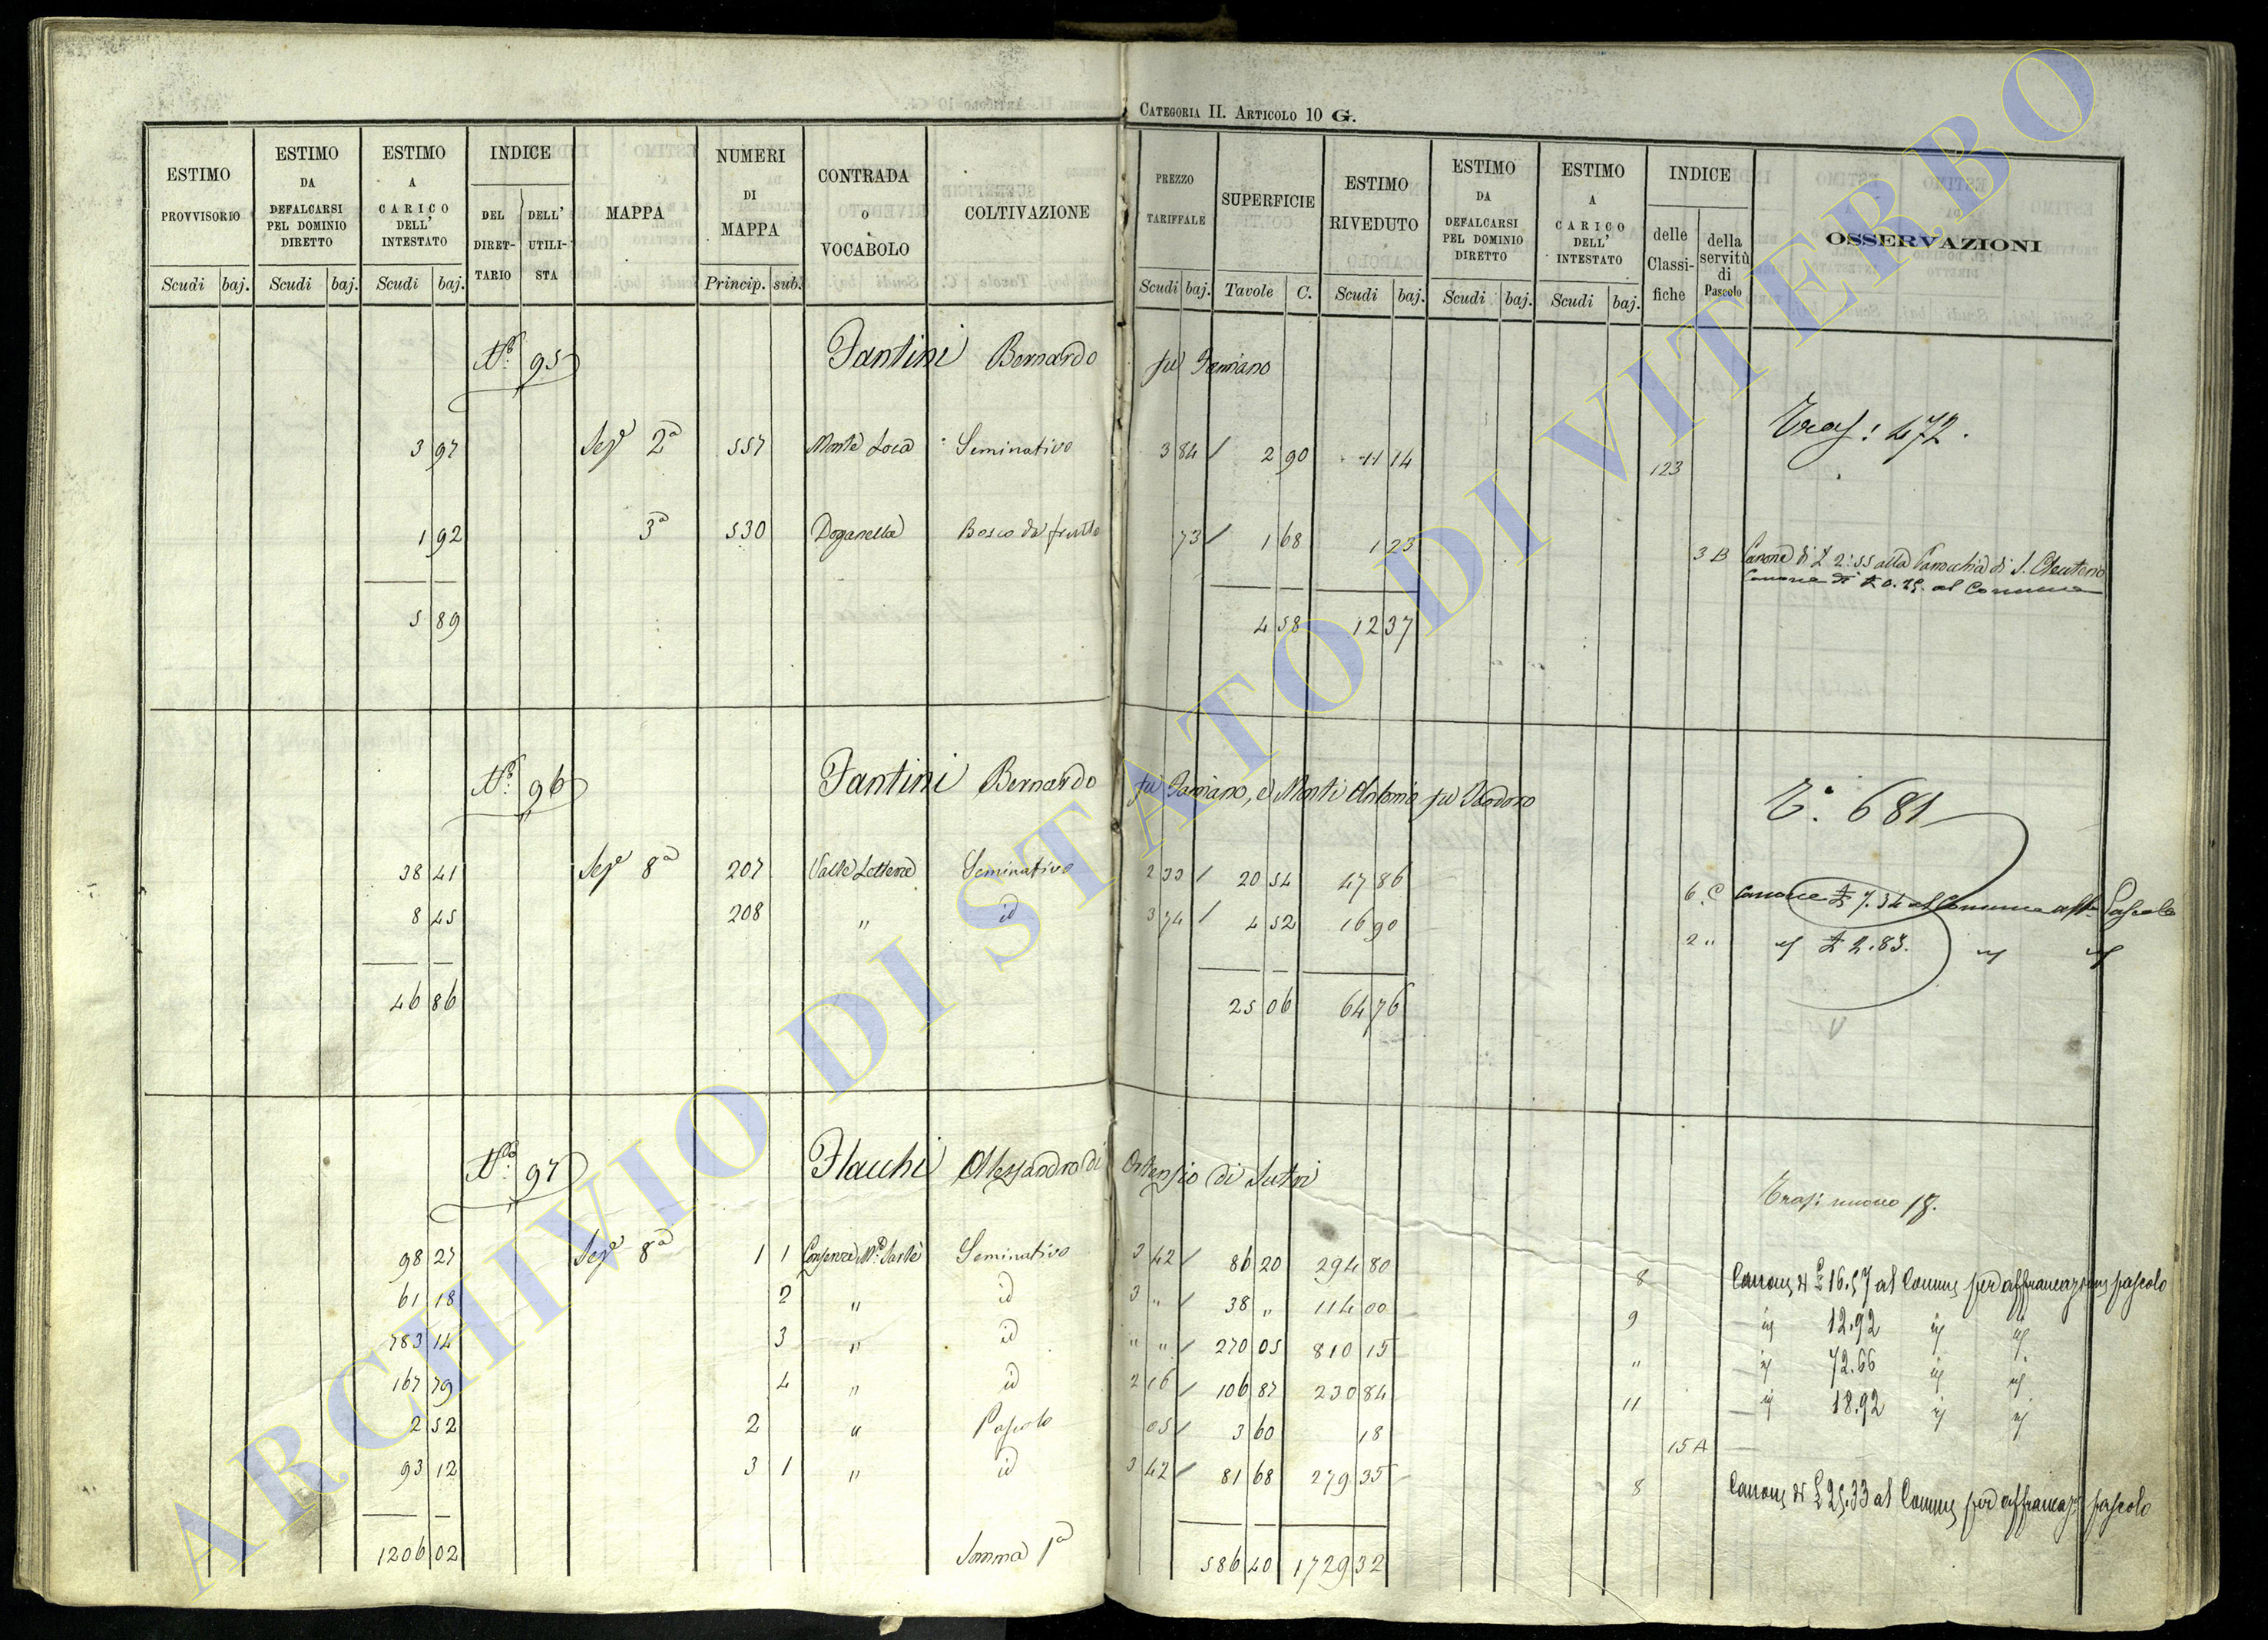 CATEGORIA II. ARTICOLO 10 G.
ESTIMO PROVVISORIO | ESTIMO DA DEFALCARSI PEL DOMINIO DIRETTO | ESTIMO A CARICO DELL' INTESTATO | INDICE | MAPPA | NUMERI DI MAPPA | CONTRADA o VOCABOLO | COLTIVAZIONE | PREZZO TARIFFALE | SUPERFICIE | ESTIMO RIVEDUTO | ESTIMO DA DEFALCARSI PEL DOMINIO DIRETTO | ESTIMO A CARICO DELL' INTESTATO | INDICE | OSSERVAZIONI
DEL DIRETTARIO | DELL' UTILISTA | delle Classifiche | della servitù di Pascolo
Scudi | baj. | Scudi | baj. | Scudi | baj. | Princip. | sub. | Scudi | baj. | Tavole | C. | Scudi | baj. | Scudi | baj. | Scudi | baj.
No. 95 Fantini Bernardo fu Damiano
Tras: 472.
3 97 Sez.e 2a 557 Monte Loca Seminativo 3 84 / 2 90 11 14 123
1 92 3a 530 Doganella Bosco da frutto 73 / 1 68 1 23 3 B Canone di £ 2:55 alla Parrocchia di S. Eleuterio
Canone di £ 0.25. al Comune
5 89 4 58 12 37
No. 96 Fantini Bernardo fu Damiano, e Monti Antonio fu Teodoro
T. 681
38 41 Sez.e 8a 207 Valle Seminativo 2 33 / 20 54 47 86 6. C Canone £ 7.34 al Comune Pascolo
8 45 208 " id 3 74 / 4 52 16 90 2 " £ 2.83.
46 86 25 06 64 76
No. 97 Flacchi Alessandro di Ortensio di Sutri
Tras: nuovo 18.
98 27 Sez.e 8a 1 1 Seminativo 3 42 / 86 20 294 80 8 Canone di £ 16.57 al Comune per affrancazione pascolo
61 18 2 " id 3 " / 38 " 114 00 9 id 12.92 id id
783 14 3 " id " " / 270 05 810 15 " id 72.66 id id
167 79 4 " id 2 16 / 106 87 230 84 11 id 18.92 id id
2 52 2 " Pascolo 05 / 3 60 18 15 A
93 12 3 1 " id 3 42 / 81 68 279 35 8 Canone di £ 25.33 al Comune per affrancaz. pascolo
1206 02 Somma 1a 586 40 1729 32
ARCHIVIO DI STATO DI VITERBO